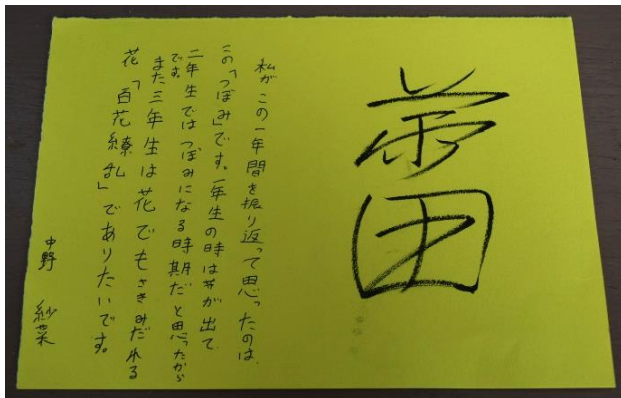 蕾
私がこの一年間を振り返って思ったのは、
この「つぼみ」です。一年生の時は芽が出て、
二年生ではつぼみになる時期だと思ったから
です。
また三年生は花でもさきみだれる
花「百花繚乱」でありたいです。
中野 紗菜